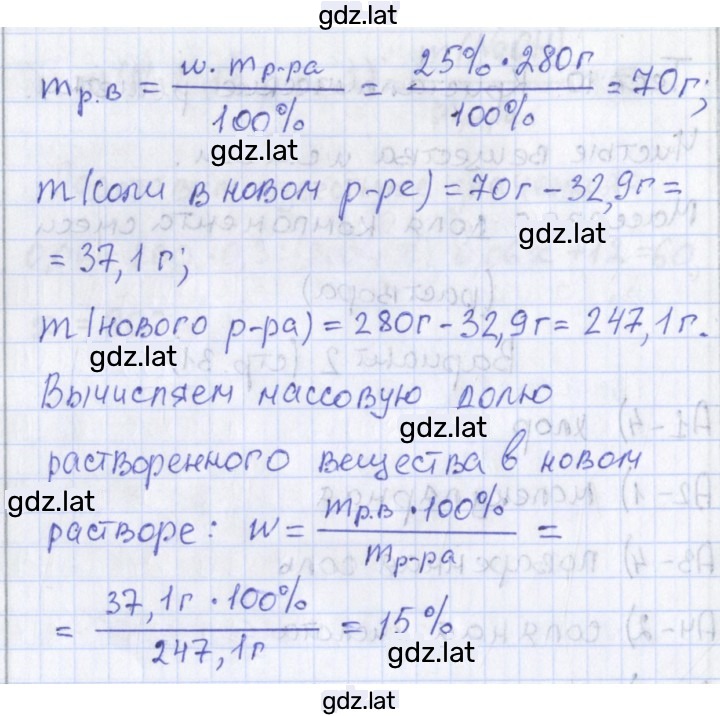 gdz.lat
m р.в = w · m р-ра / 100% = 25% · 280г / 100% = 70г;
gdz.lat
m (соли в новом р-ре) = 70г - 32,9г =
gdz.lat
= 37,1г;
m (нового р-ра) = 280г - 32,9г = 247,1г.
gdz.lat
Вычисляем массовую долю
gdz.lat
растворенного вещества в новом
gdz.lat
растворе: w = m р.в · 100% / m р-ра =
= 37,1г · 100% / 247,1г = 15%
gdz.lat
gdz.lat